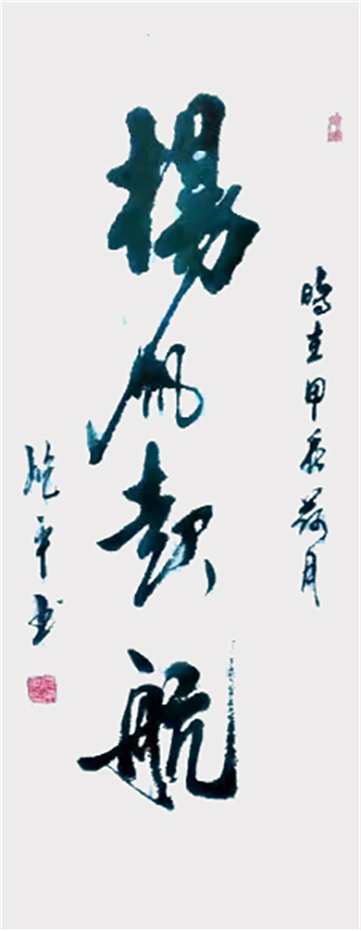 時在甲辰荷月
揚帆起航
平书